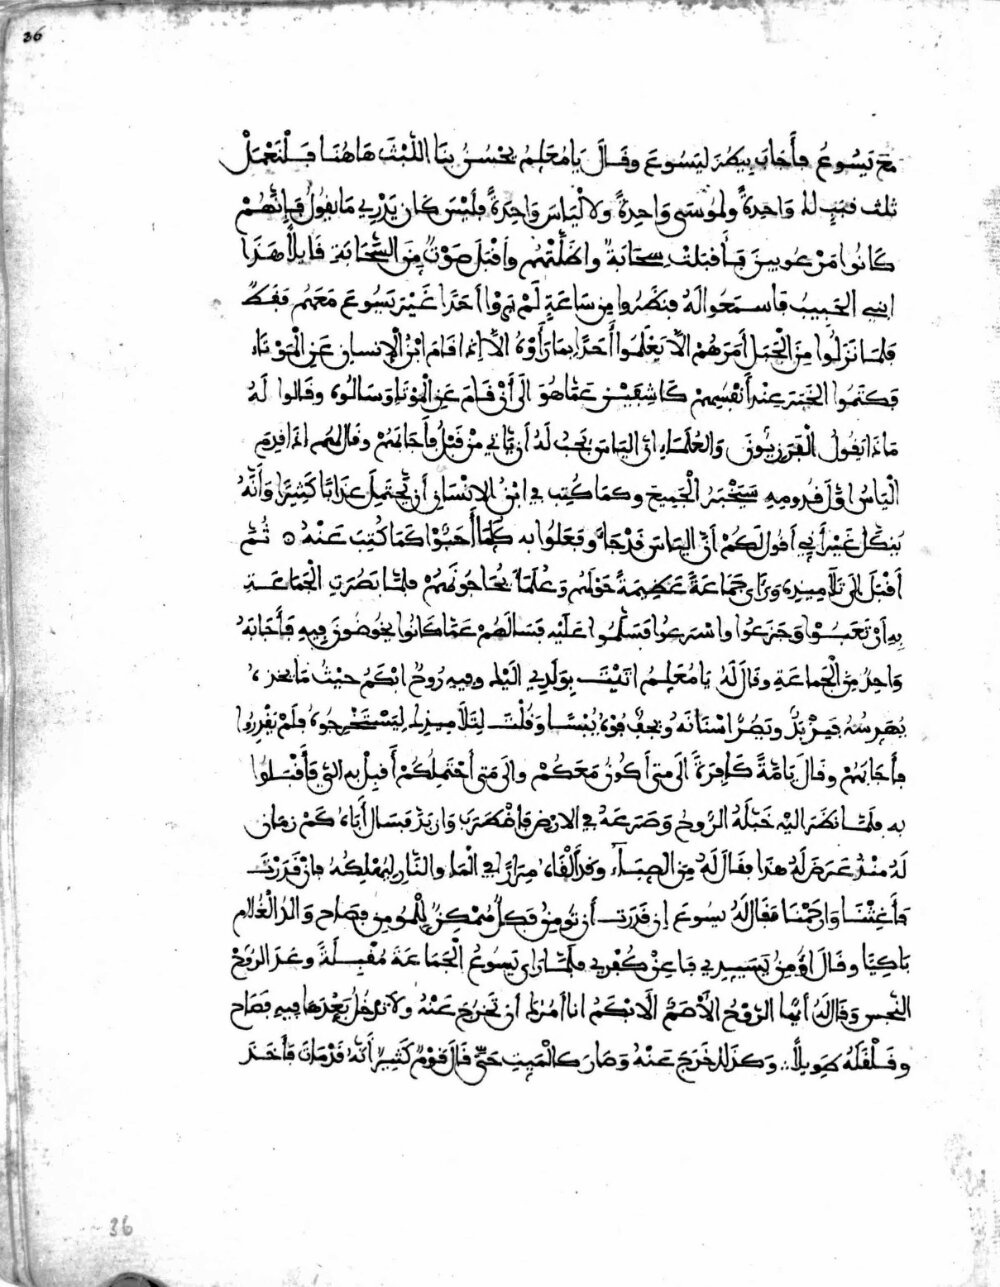 36
مع يَسُوعُ فأَجَابَ بِيطُرُ ليَسُوعَ وقَالَ يَا مُعَلِمُ يحْسُنُ بِنَا اللّبْثُ هَاهُنَا فَلْنَعْمَلْ
ثلث قبَبٍ لك وَاحِدةً ولمُوسَى وَاحِدةً ولالْيَاسَ وَاحِدَةً فلَيْسَ كان يَدْرِي مَا يَقُولُ فإنَّهُمْ
كَانُوا مَرْعُوبينَ فأَقبَلتْ سحَابَةٌ واظَلَّتْهُم وأقْبَلَ صَوْتٌ مِنَ السَّحَابَة قايلًا هَذَا
ابني الحَبِيبُ فاسمَعُوا لَهُ فنَظَرُوا مِن سَاعَةٍ لَمْ يَرَوْا أحَدًا غَيْرَ يَسُوعَ مَعَهُم فقطْ
فلمَا نَزَلُوا مِنَ الْجَبَلِ أمَرَهُمْ الّا يَعْلِمُوا أَحَدًا بمَا رَأَوْهُ الّا إذا قَامَ ابْنُ الْإنسان عَنِ الْمَوْتَاء
فكتَمُوا الخَبَرَ عِنْدَ أَنْفُسِهِمْ كَاشِفِينَ عَمَّا هُوَ الَى أَنْ قَامَ عَنِ الْمَوْتَاء وسَالُوه وقالوا لَهُ
مَاذَا يَقُولُ الْفَرَزِيُّونَ والعُلَمَاء انّ اليَاسَ يجَبُ لَهُ أن يّاتي مِنْ قَبْلُ فأَجَابَهُمْ وقال لهُم اذَا قدِمَ
الْيَاسُ اوّلَ قُدومِهِ سَيَخْبَرُ الْجَمِيعَ وكمَا كُتِبَ في ابْنِ الانْسَانِ أن يَّحْتَمِلَ عذابًا كَثِيرًا وَأنَّهُ
يُنَكَّل غَيْرَ أنِي أقول لَكُمْ أنَّ اليَاسَ قَدْ جَاء وفَعَلُوا به كَلّمَا أَحَبُّوْا كَمَا كُتِبَ عَنْهُ ۝ ثُمَّ
أقْبَلَ الَى تَلَامِيذِه ورَاى جَمَاعَةً عَظِيمَةً حَوْلَهُم وعُلَمَاء يُحَاجُونَهُمْ فلمَّا بَصُرَتِ الْجَمَاعَة
بِهِ انْ تَعَجبُوْا وجَزَعُوا واسْرَعُوا فسَلّمُوا عَلَيْه فسَالَهُمْ عَمَّا كَانُوا يخُوضُونَ فِيهِ فأَجَابَهُ
وَاحِدٌ مِنَ الْجَماعَةِ وقَالَ لَهُ يَا مُعَلِمُ اتَيْتُ بِوَلَدِي الَيْك وفِيهِ رُوحٌ ابْكَمُ حيْثُ مَا يَاخذ
يُهَرِسُهُ فيَزْبَدُ وتَصُرُّ اسْنَانَهُ ويَجِفُّ قُوّةً يُبْسًا وَقُلْتُ لِتَلَامِيذِك لِيَسْتَخْرِجُوهُ فلَمْ يَقْدِرُوا
فأجَابَهُمْ وقَالَ يَا مّةً كَافِرَةً الَى مَتى أَكُونُ مَعَكُمْ والَى مَتى أحْتمِلُكُمْ أَقبِلْ به الَيَّ فأَقْبَلُوا
به فلمَّا نظَرَ اليْه خبَلَهُ الرُّوحُ وصَرَعَهُ في الارْض فاضْطَرَبَ وازبَدَ فسَالَ أبَاه كَمْ زمَان
لَهُ مُنْذُ عَرَضَ لَهُ هذا فقَالَ لَهُ مِنَ الصِبَاءِ وقد أَلْقَاه مِرَارًا في الْمَاءِ والنَّار ليُهْلِكَهُ فإنْ قَدَرْتَ
فأَغِثْنَا وَارحَمْنَا فَقَال لَهُ يسُوعَ إن قَدَرتَ أن تُومِنُ فَكلٌ مُمْكِنٌ لِلْمُومِن فصَاحَ وَالدُ الْغُلَام
بَاكِيًا وقَالَ اوُمِنُ يَسِيدِي فاعِنْ كُفْرِي فلمَّا رَاى يَسُوعُ الْجَمَاعَةَ مُقْبِلَةً وعَدَ الرّوحَ
النَّجِسَ وقَال لَهُ أيُّهَا الرُّوحُ الْأصَمُّ الَابْكَمُ انا آمُرُك أنْ تَخرُجَ عَنْهُ ولَا تدْخُلُ بَعْدَهَا فِيهِ فصَاحَ
وقَلْقَلَهُ طَوِيلًا ؞ وكذلك خَرَجَ عَنْهُ وصَارَ كالْمَيِتِ حَتَّى قَالَ قَوْمٌ كَثِيرٌ أنّهُ قَدْ مَاتَ فأخَذَ
36